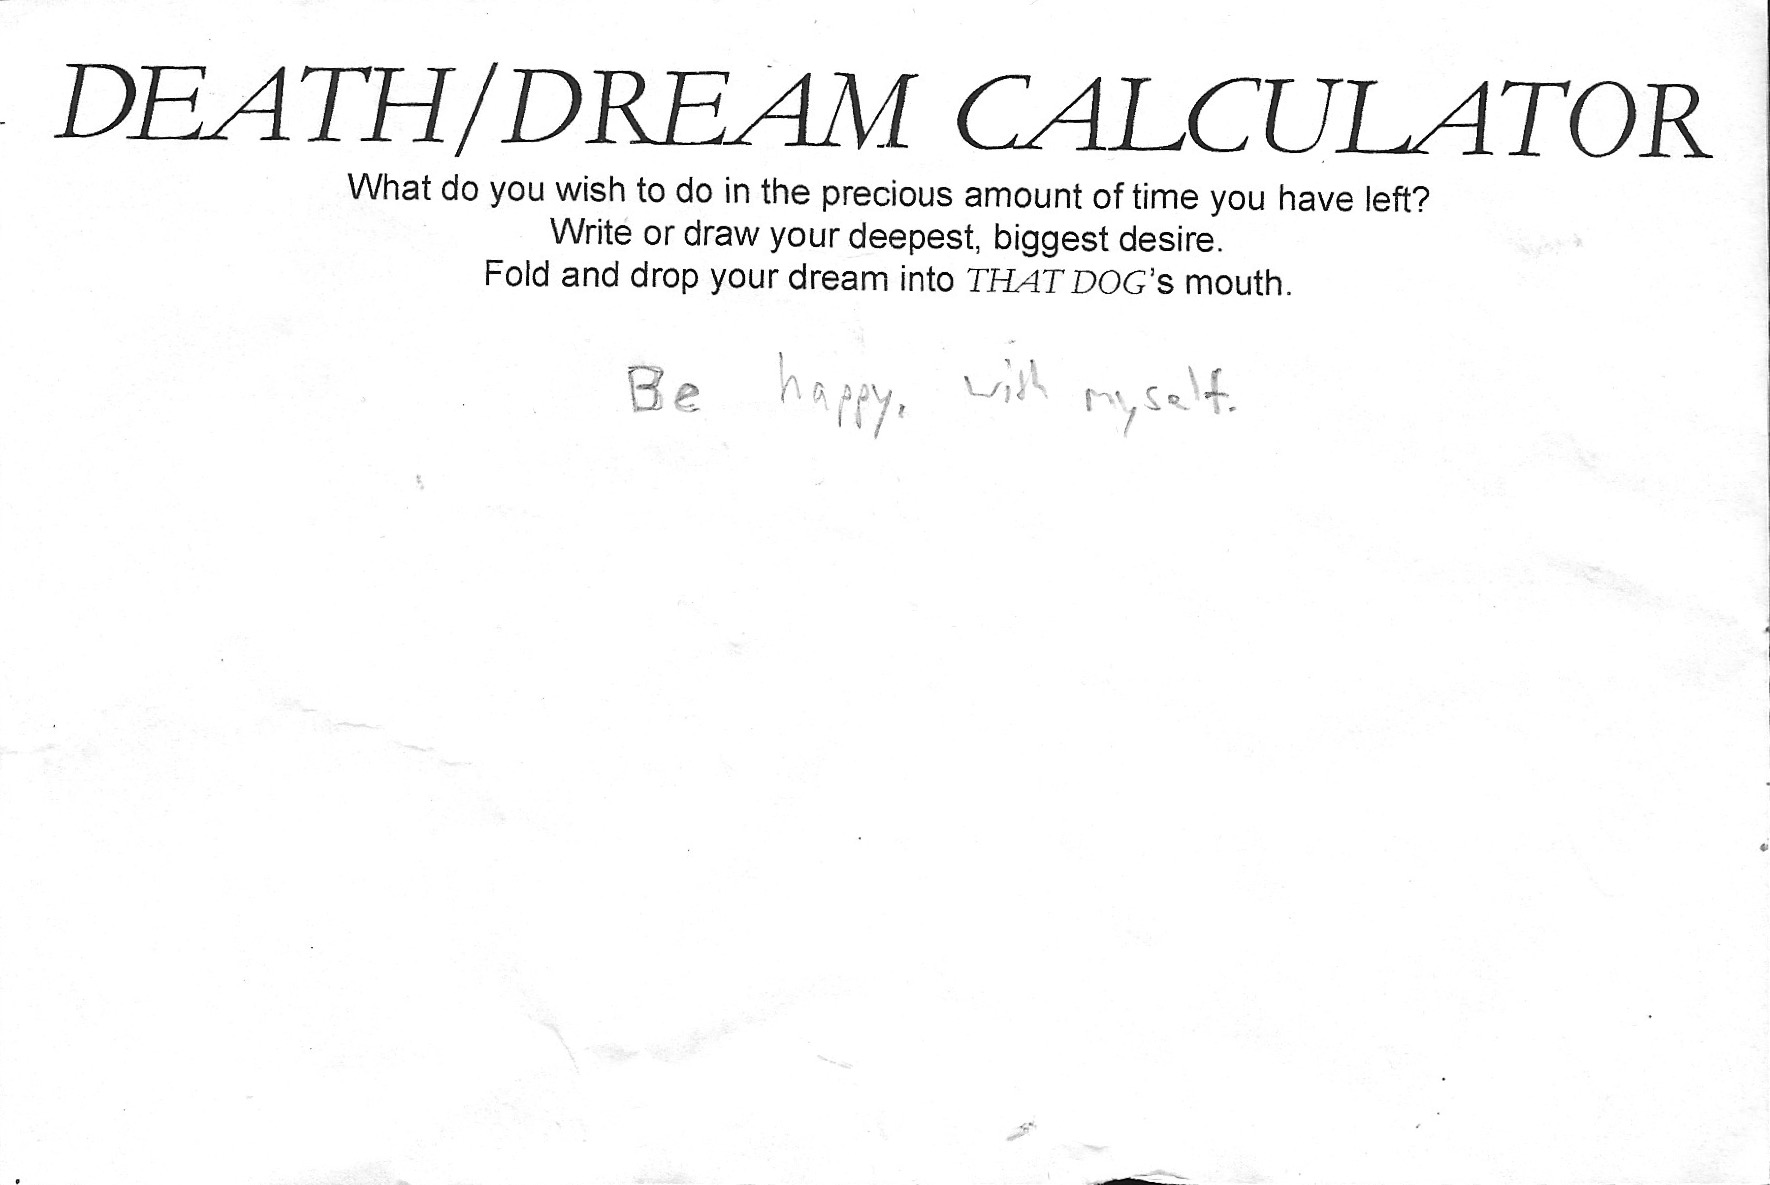 DEATH/DREAM CALCULATOR
What do you wish to do in the precious amount of time you have left?
Write or draw your deepest, biggest desire.
Fold and drop your dream into THAT DOG's mouth.
Be happy, with myself.